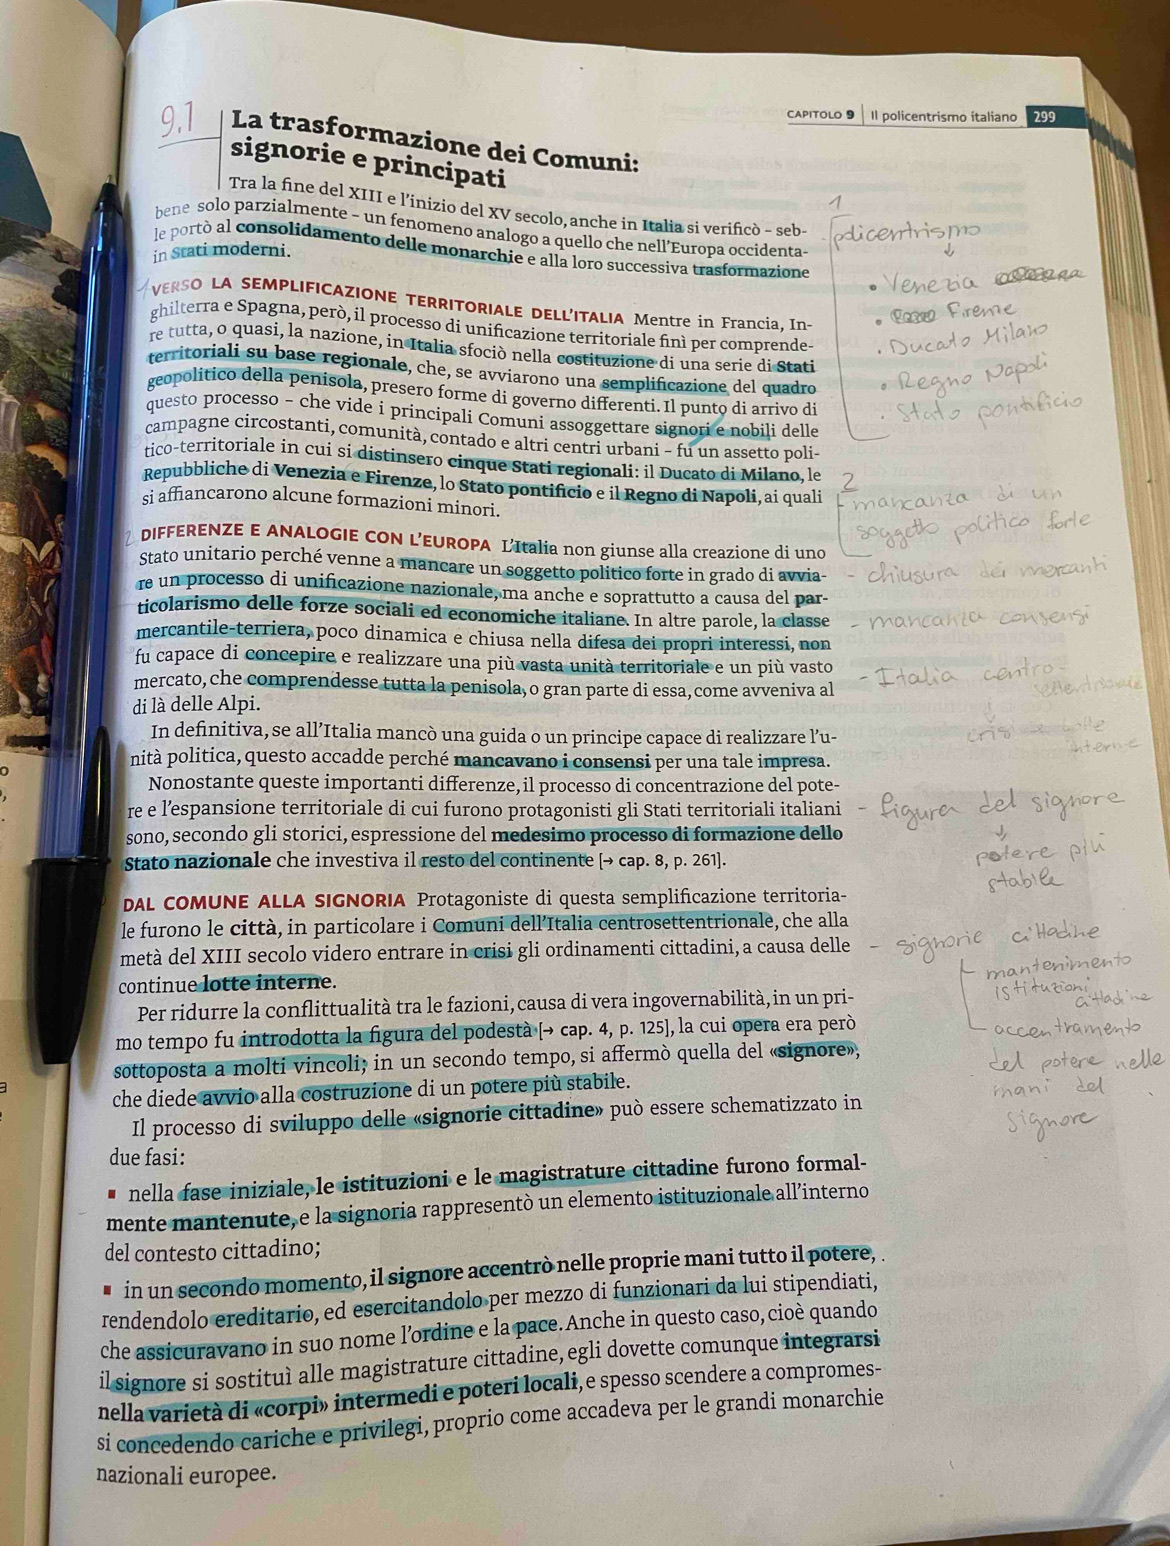 CAPITOLO 9 Il policentrismo italiano 299
9.1
La trasformazione dei Comuni:
signorie e principati
Tra la fine del XIII e l'inizio del XV secolo, anche in Italia si verificò – seb-
bene solo parzialmente – un fenomeno analogo a quello che nell'Europa occidenta-
le portò al consolidamento delle monarchie e alla loro successiva trasformazione
in Stati moderni.
1 VERSO LA SEMPLIFICAZIONE TERRITORIALE DELL'ITALIA Mentre in Francia, In-
ghilterra e Spagna, però, il processo di unificazione territoriale finì per comprende-
re tutta, o quasi, la nazione, in Italia sfociò nella costituzione di una serie di Stati
territoriali su base regionale, che, se avviarono una semplificazione del quadro
geopolitico della penisola, presero forme di governo differenti. Il punto di arrivo di
questo processo – che vide i principali Comuni assoggettare signori e nobili delle
campagne circostanti, comunità, contado e altri centri urbani – fu un assetto poli-
tico-territoriale in cui si distinsero cinque Stati regionali: il Ducato di Milano, le
Repubbliche di Venezia e Firenze, lo Stato pontificio e il Regno di Napoli, ai quali
si affiancarono alcune formazioni minori.
2 DIFFERENZE E ANALOGIE CON L'EUROPA L'Italia non giunse alla creazione di uno
Stato unitario perché venne a mancare un soggetto politico forte in grado di avvia-
re un processo di unificazione nazionale, ma anche e soprattutto a causa del par-
ticolarismo delle forze sociali ed economiche italiane. In altre parole, la classe
mercantile-terriera, poco dinamica e chiusa nella difesa dei propri interessi, non
fu capace di concepire e realizzare una più vasta unità territoriale e un più vasto
mercato, che comprendesse tutta la penisola, o gran parte di essa, come avveniva al
di là delle Alpi.
In definitiva, se all'Italia mancò una guida o un principe capace di realizzare l'u-
nità politica, questo accadde perché mancavano i consensi per una tale impresa.
Nonostante queste importanti differenze, il processo di concentrazione del pote-
re e l'espansione territoriale di cui furono protagonisti gli Stati territoriali italiani
sono, secondo gli storici, espressione del medesimo processo di formazione dello
Stato nazionale che investiva il resto del continente [→ cap. 8, p. 261].
DAL COMUNE ALLA SIGNORIA Protagoniste di questa semplificazione territoria-
le furono le città, in particolare i Comuni dell'Italia centrosettentrionale, che alla
metà del XIII secolo videro entrare in crisi gli ordinamenti cittadini, a causa delle
continue lotte interne.
Per ridurre la conflittualità tra le fazioni, causa di vera ingovernabilità, in un pri-
mo tempo fu introdotta la figura del podestà [→ cap. 4, p. 125], la cui opera era però
sottoposta a molti vincoli; in un secondo tempo, si affermò quella del «signore»,
che diede avvio alla costruzione di un potere più stabile.
Il processo di sviluppo delle «signorie cittadine» può essere schematizzato in
due fasi:
▪ nella fase iniziale, le istituzioni e le magistrature cittadine furono formal-
mente mantenute, e la signoria rappresentò un elemento istituzionale all'interno
del contesto cittadino;
▪ in un secondo momento, il signore accentrò nelle proprie mani tutto il potere,
rendendolo ereditario, ed esercitandolo per mezzo di funzionari da lui stipendiati,
che assicuravano in suo nome l'ordine e la pace. Anche in questo caso, cioè quando
il signore si sostituì alle magistrature cittadine, egli dovette comunque integrarsi
nella varietà di «corpi» intermedi e poteri locali, e spesso scendere a compromes-
si concedendo cariche e privilegi, proprio come accadeva per le grandi monarchie
nazionali europee.
1
policentrismo
↓
• Venezia
• Firenze
• Ducato Milano
• Regno Napoli
• Stato pontificio
2
mancanza di un
soggetto politico forte
- chiusura dei mercanti
- mancanza consensi
- Italia centro-
settentrionale
↓
interne
- figura del signore
↓
potere più
stabile
- signorie cittadine
- mantenimento
istituzioni
cittadine
- accentramento
del potere nelle
mani del
signore